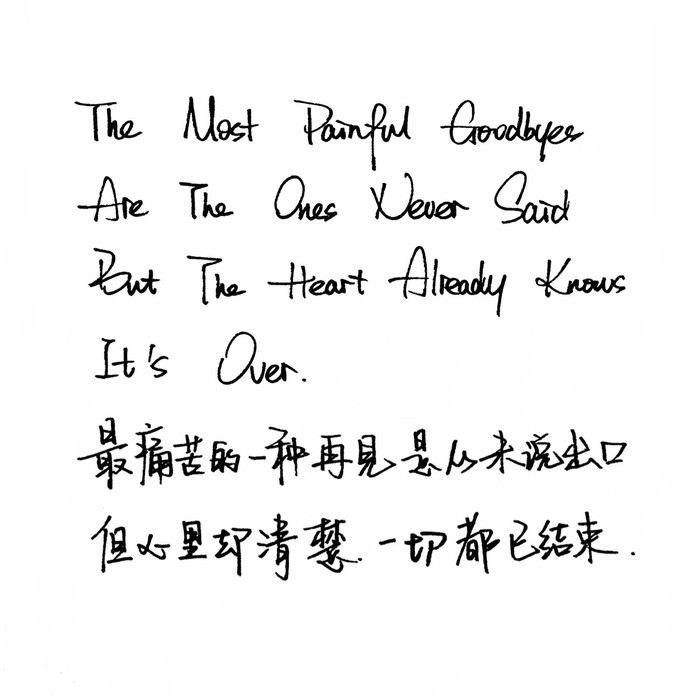 The Most Painful Goodbyes
Are The Ones Never Said
But The Heart Already Knows
It's Over.
最痛苦的一种再见是从未说出口
但心里却清楚.一切都已结束.